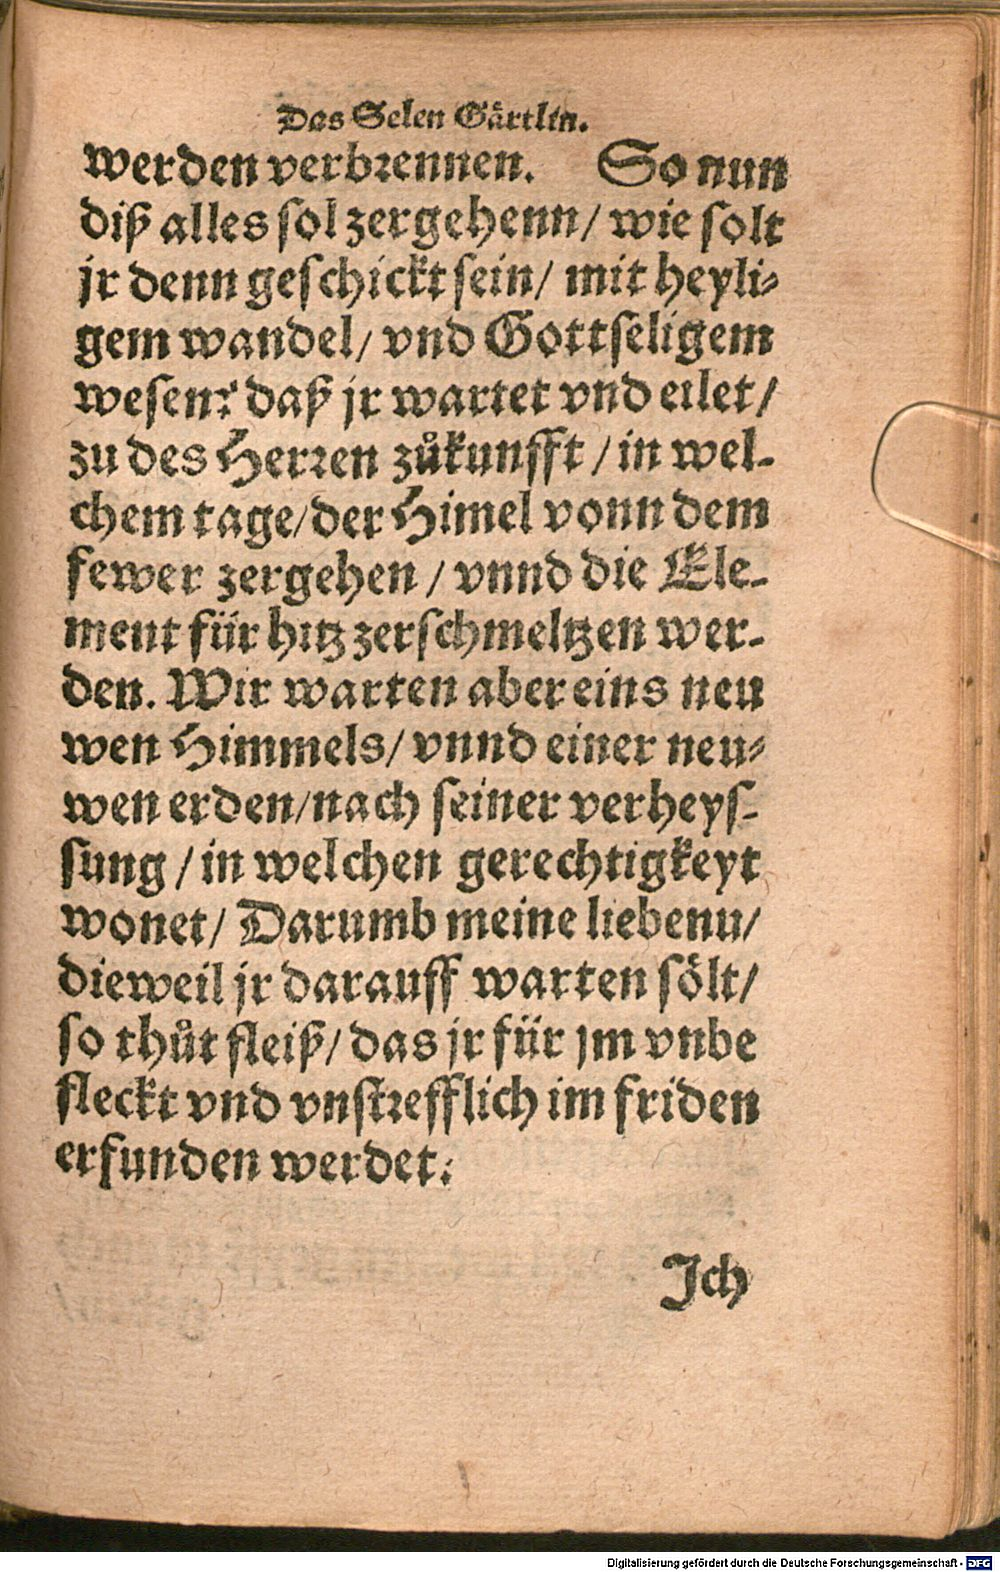 Das Selen Gårtlin.
werden verbrennen. So nun
diß alles sol zergehenn/ wie solt
jr denn geschickt sein/ mit heyli-
gem wandel/ vnd Gottseligem
wesen? daß jr wartet vnd eilet/
zu des Herren zůkunfft / in wel-
chem tage/ der Himel vonn dem
fewer zergehen / vnnd die Ele-
ment für hitz zerschmeltzen wer-
den. Wir warten aber eins neu
wen Himmels/ vnnd einer neu-
wen erden/nach seiner verheys-
sung / in welchen gerechtigkeyt
wonet/ Darumb meine liebenn/
dieweil jr darauff warten sölt/
so thůt fleiß/ das jr für jm vnbe
fleckt vnd vnstrefflich im friden
erfunden werdet.
Jch
Digitalisierung gefördert durch die Deutsche Forschungsgemeinschaft - DFG